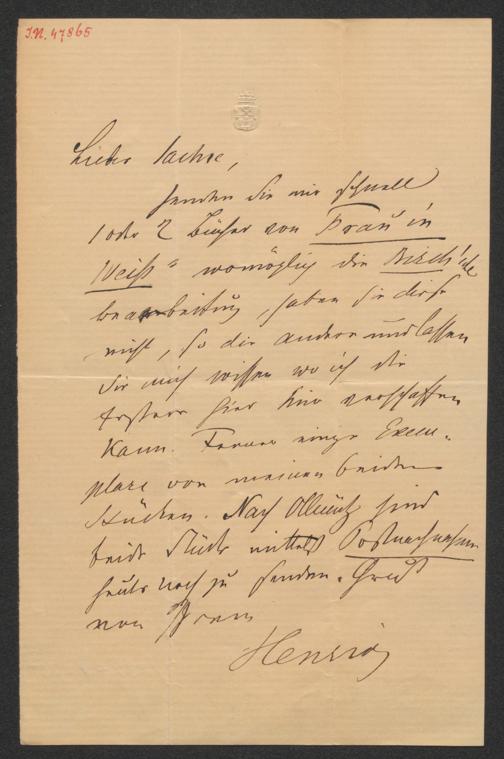 I.N. 47865
Lieber Sachse,
senden Sie mir schnell
1 oder 2 Bücher von Frau in
Weiß" womöglich die Birch'sche
bearbeitung, haben Sie diese
nicht, so die andere und lassen
Sie mich wissen wo ich die
erstere hier verschaffen
kann. Ferner einige Exem-
plare von meinen beiden
Stücken. Nach Ollmütz sind
beide Stücke mittelst Postnachnahme
heute noch zu senden. Gruß
von Ihrem